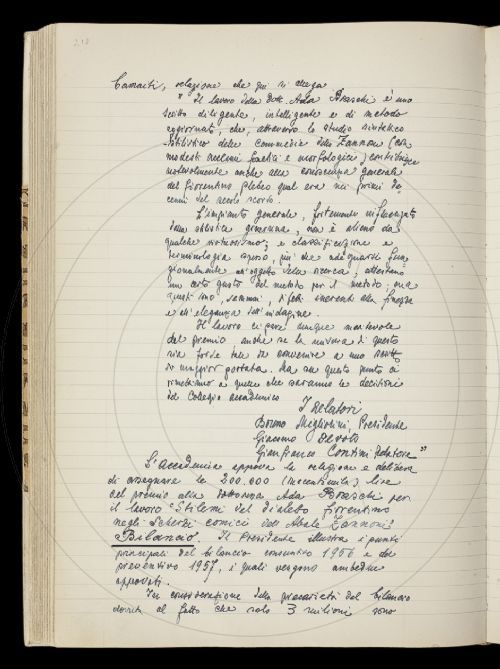 210
Camaiti, relazione che qui si allega
" Il lavoro della dott. Ada Braschi è uno
scritto diligente, intelligente e di metodo
aggiornato, che, attraverso lo studio sintattico
-stilistico delle commedie dello Zannoni (con
modesti accenni fonetici e morfologici) contribuisce
notevolmente anche alla conoscenza generale
del fiorentino plebeo qual era nei primi de-
cenni del secolo scorso.
L'impianto generale, fortemente influenzato
dalla stilistica, non è alieno da
qualche e classificazione e
terminologia spesso, più che adeguarsi fun-
zionalmente all'oggetto della ricerca, attestano
un certo gusto del metodo per il metodo; ma
questi sono, semmai, difetti inerenti alla finezza
e all'eleganza dell'indagine.
Il lavoro ci pare dunque meritevole
del premio anche se la misura di questo
sia forse tale da convenire a uno scritto
di maggior portata. Ma su questo punto ci
rimettiamo a quelle che saranno le decisioni
del Collegio accademico
I Relatori
Bruno Migliorini, Presidente
Giacomo Devoto
Gianfranco Contini Relatore "
L'accademia approva la relazione e delibera
di assegnare le 200.000 (duecentomila) lire
del premio alla dottoressa Ada Braschi per
il lavoro "Stilemi del dialetto fiorentino
negli Scherzi comici dell'Abate Zannoni"
Bilancio. Il Presidente illustra i punti
principali del bilancio consuntivo 1956 e del
preventivo 1957, i quali vengono ambedue
approvati.
In considerazione della precarietà del bilancio
dovuta al fatto che solo 3 milioni sono